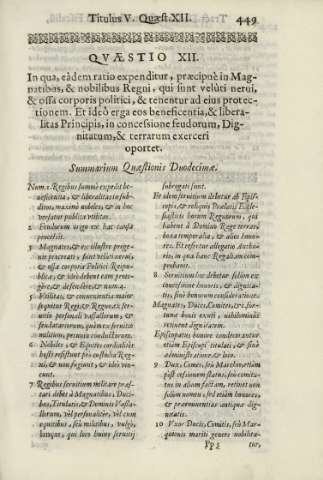 Titulus V. Quæst. XII.
449
QVÆSTIO XII.
In qua, eàdem ratio expenditur, præcipuè in Mag-
natibus, & nobilibus Regni, qui sunt velùti nerui,
& ossa corporis politici, & tenentur ad eius protec-
tionem. Et ideò erga eos beneficentia, & libera-
litas Principis, in concessione feudorum, Dig-
nitatum, & terrarum exerceri
oportet.
Summarium Quæstionis Duodecimæ.
Num. 1. Regibus summè expedit be-
neficentia, & liberalitas in subdi-
tos, maximè nobiles, & in hoc
versatur publica vtilitas.
2 Feudorum origo ex hac causa
processit.
3 Magnates, & ex illustre proge-
nie procreati, sunt velùti nerui,
& ossa corporis Politici Reipu-
blicæ, & ideò debent eam prote-
gere, & defendere, & num. 4.
5 Vtilitas, & conuenientia maior
Reges, & Regnis, ex ser-
uitio personali vassallorum, &
feudatariorum, quàm ex seruitio
militum, pretio conductorum.
6 Nobiles, & Equites
hosti resistunt pro custodia Reg-
ni, & non fugiunt, & ideò vin-
cunt.
7 Regibus seruitium militare præs-
tari debet à Magnatibus, Duci-
bus, Titulatis, & Dominis Vassa-
llorum, vel personaliter, vel cum
equitibus, seù militibus, vulgò,
lanças, qui loco huius seruitij
subrogati sunt.
Et idem seruitium debetur ab Epis-
copis, & reliquis Prælatis Eccle-
siasticis horum Regnorum, qui
habent à Domino Rege terras,
bona temporalia, & alios hono-
res. Et refertur allegatio Autho-
ris, in qua hanc Regaliam com-
probauit.
8 Seruitium hoc debetur solùm ex
concessione honoris, & dignita-
tis, sinè bonorum consideratione.
Magnates, Duces, Comites, &c. for-
tunæ bonis exuti, nihilominùs
retinent dignitatem.
Episcopatus honore condecorantur
etiam Episcopi titulati, & sinè
administratione, & loco.
9 Dux, Comes, seù Marchio etiam
post cessionem status, seù comita-
tus in alium factam, retinet non
solùm nomen, sed etiam honores,
& præeminentias antiquæ dig-
nitatis.
10 Vxor Ducis, Comitis, seù Mar-
quionis mariti genere nobilita-
tur,